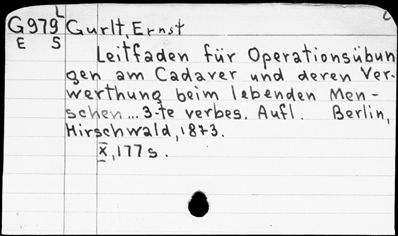 L
G979 Gurlt, Ernst
E S
Leitfaden für Operationsübun
gen am Cadaver und deren Ver-
werthung beim lebenden Men-
schen... 3-te verbes. Aufl. Berlin,
Hirschwald, 1873.
X, 177 s.